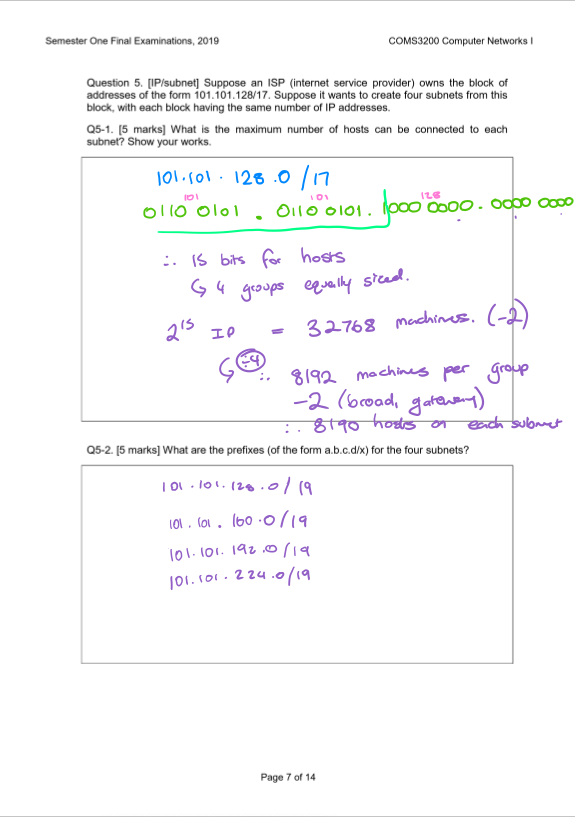 Semester One Final Examinations, 2019 COMS3200 Computer Networks I
Question 5. [IP/subnet] Suppose an ISP (internet service provider) owns the block of
addresses of the form 101.101.128/17. Suppose it wants to create four subnets from this
block, with each block having the same number of IP addresses.
Q5-1. [5 marks] What is the maximum number of hosts can be connected to each
subnet? Show your works.
101.101.128.0/17
101 101 128
0110 0101 . 0110 0101. 1000 0000. 0000 0000
∴ 15 bits for hosts
↳ 4 groups equally sized.
2^15 IP = 32768 machines. (-2)
↳ ÷4 ∴ 8192 machines per group
-2 (broad, gateway)
∴ 8190 hosts on each subnet
Q5-2. [5 marks] What are the prefixes (of the form a.b.c.d/x) for the four subnets?
101.101.128.0/19
101.101.160.0/19
101.101.192.0/19
101.101.224.0/19
Page 7 of 14